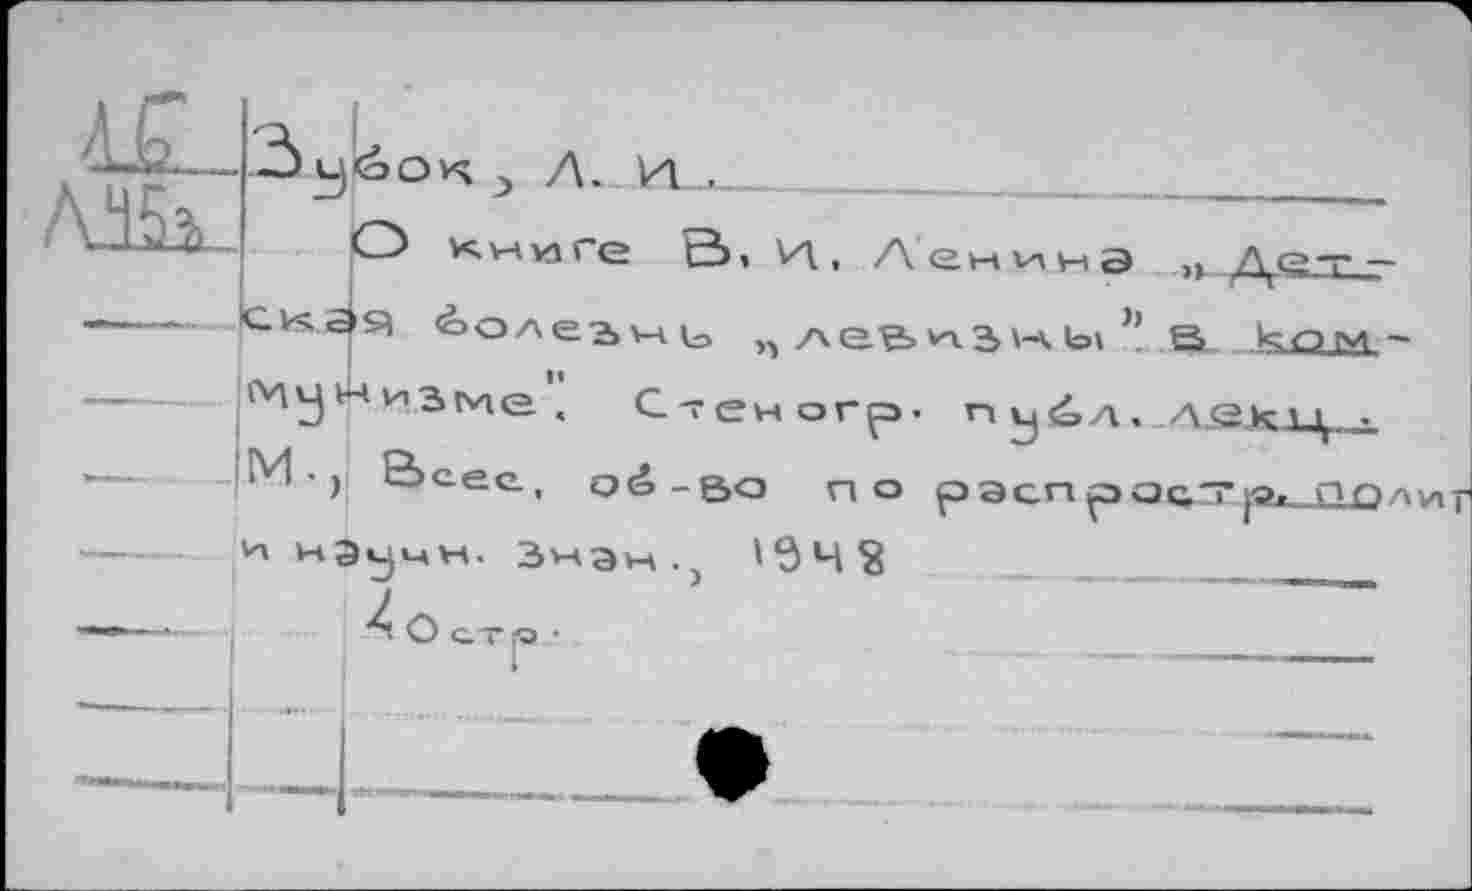 ЛБ
Л45ъ
Зубок, Л. И.
О книге В. И. Ленина „Дет-
ская болезнь „левизны” в ком-
мунизме". Стеногр. публ. лекц.
М., Всес. об-во по распростр. полит
и научн. знан., 1948
Остр.